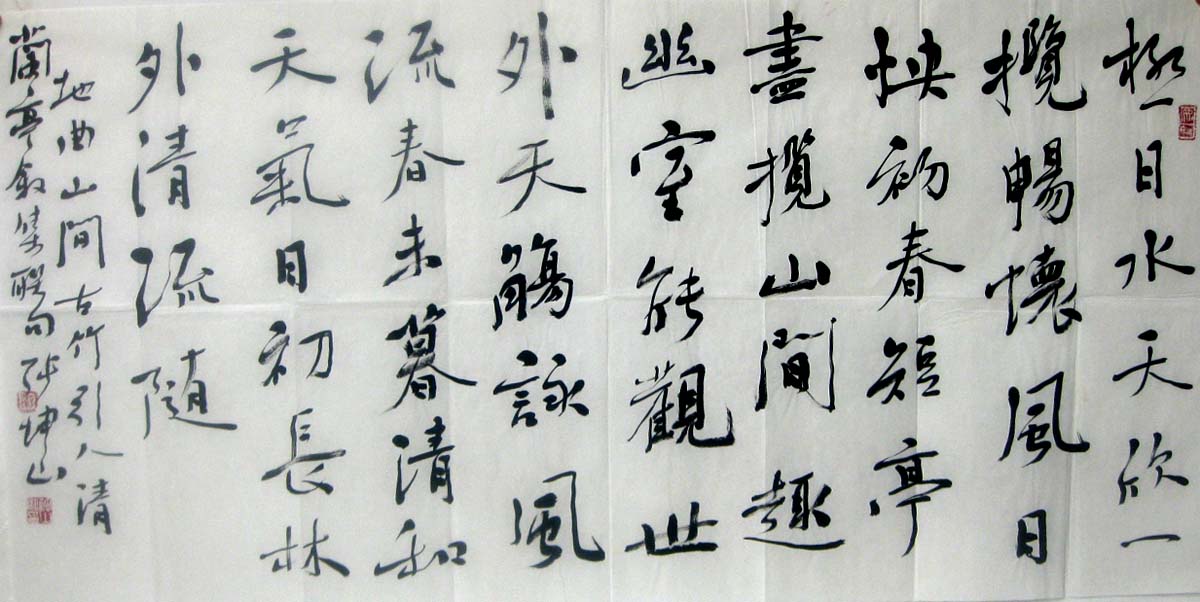 極一日水天欣一
攬暢懷風日
快初春短亭
盡攬山間趣
幽室能觀世
外天觴詠風
流春未暮清和
天氣日初長林
外清流隨
地曲山間古竹引人清
蘭亭敘集聯句 坤山